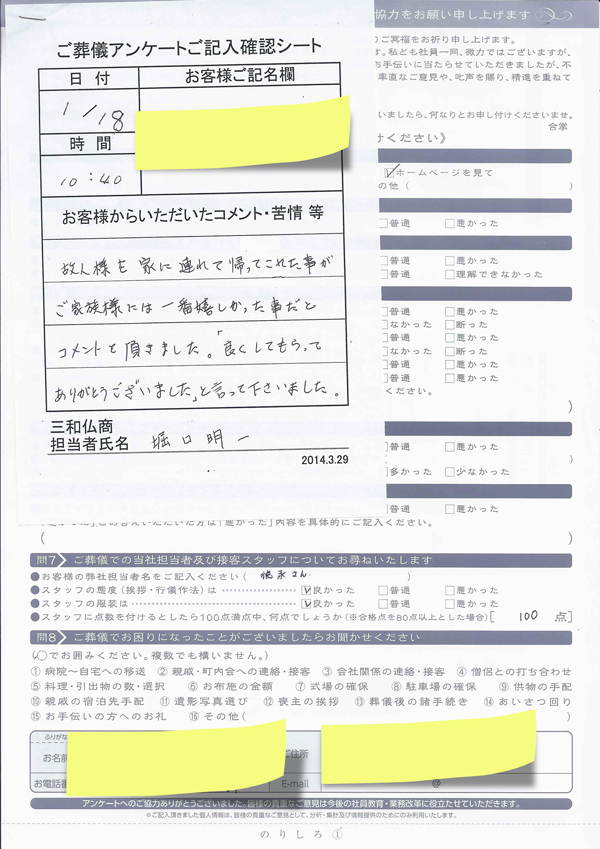 協力をお願い申し上げます
ご葬儀アンケートご記入確認シート
日付
お客様ご記名欄
1/18
時間
10:40
お客様からいただいたコメント・苦情 等
故人様を家に連れて帰ってこれた事が
ご家族様には一番嬉しかった事だと
コメントを頂きました。「良くしてもらって
ありがとうございました」と言って下さいました。
三和仏商
担当者氏名 堀口明一
2014.3.29
ご冥福をお祈り申し上げます。
す。私ども社員一同、微力ではございますが、
お手伝いに当たらせていただきましたが、不
率直なご意見や、叱声を賜り、精進を重ねて
いましたら、何なりとお申し付けくださいませ。
合掌
けください》
ホームページを見て
の他( )
普通 □悪かった
普通 □悪かった
普通 □理解できなかった
普通 □悪かった
なかった □断った
普通 □悪かった
なかった □断った
普通 □悪かった
普通 □悪かった
ください。
)
普通 □悪かった
多かった □少なかった
普通 □悪かった
お答えいただいた方は「悪かった」内容を具体的にご記入ください。
( )
問7 ご葬儀での当社担当者及び接客スタッフについてお尋ねいたします
●お客様の弊社担当者名をご記入ください( 徳永さん )
●スタッフの態度(挨拶・行儀作法)は ☑良かった □普通 □悪かった
●スタッフの服装は ☑良かった □普通 □悪かった
●スタッフに点数を付けるとしたら100点満点中、何点でしょうか(※合格点を80点以上とした場合)[ 100 点]
問8 ご葬儀でお困りになったことがございましたらお聞かせください
(○でお囲みください。複数でも構いません。)
①病院~自宅への移送 ②親戚・町内会への連絡・接客 ③会社関係の連絡・接客 ④僧侶との打ち合わせ
⑤料理・引出物の数・選択 ⑥お布施の金額 ⑦式場の確保 ⑧駐車場の確保 ⑨供物の手配
⑩親戚の宿泊先手配 ⑪遺影写真選び ⑫喪主の挨拶 ⑬葬儀後の諸手続き ⑭あいさつ回り
⑮お手伝いの方へのお礼 ⑯その他( )
ふりがな
お名前
ご住所
お電話番
E-mail @
アンケートへのご協力ありがとうございました。皆様の貴重なご意見は今後の社員教育・業務改革に役立たせていただきます。
※ご記入頂きました個人情報は、皆様の貴重なご意見として、分析・集計及び情報提供のためにのみ利用いたします。
のりしろ①